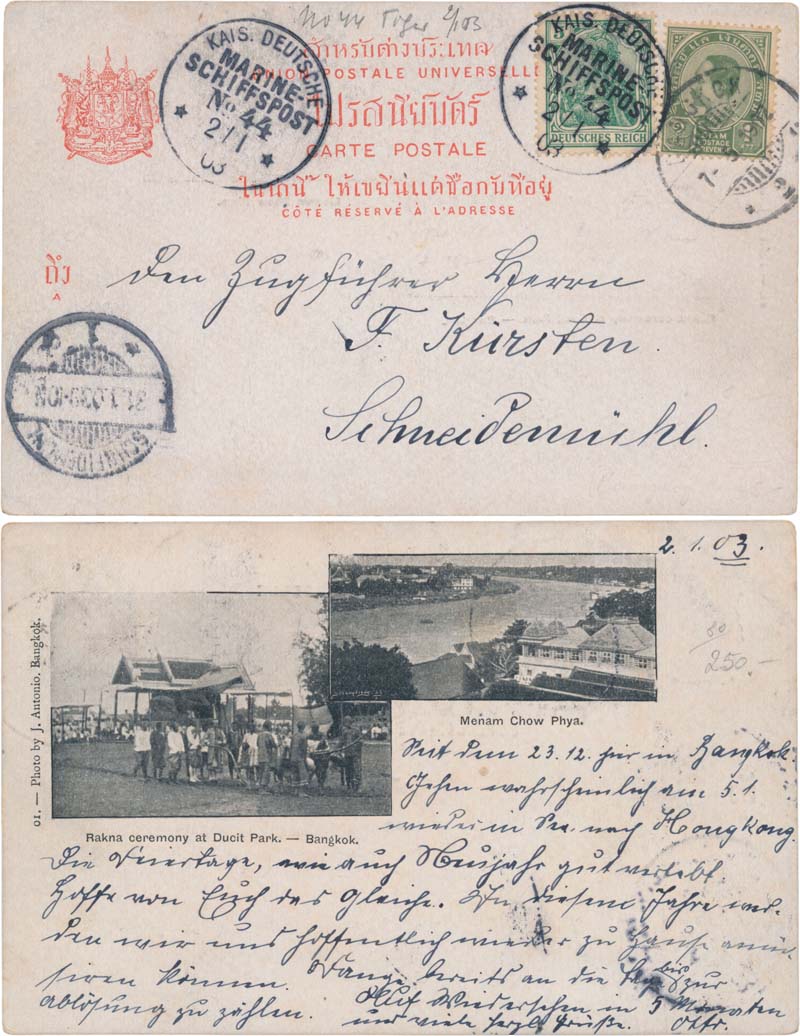 No 44 Tiger 2/1 03
KAIS. DEUTSCHE
MARINE-
SCHIFFSPOST
No 44
2/1
03
KAIS. DEUTSCHE
MARINE-
SCHIFFSPOST
No 44
2/1
03
DEUTSCHES REICH
SIAM
POSTAGE
สำหรับต่างประเทศ
UNION POSTALE UNIVERSELLE
ไปรสนียบัตร์
CARTE POSTALE
ในด้านนี้ ให้เขียนแต่ชื่อกับที่อยู่
CÔTÉ RÉSERVÉ À L'ADRESSE
ถึง
A
Den Zugführer Herrn
F. Kürsten.
Schneidemühl.
2. 1. 03.
80
250.-
01. — Photo by J. Antonio, Bangkok.
Menam Chow Phya.
Rakna ceremony at Ducit Park. — Bangkok.
Seit dem 23.12. hier in Bangkok.
Gehen wahrscheinlich am 5.1.
wieder in See nach Hongkong.
Die Feiertage, wie auch Neujahr gut verlebt
hoffe von Euch das gleiche. In diesem Jahre wer-
den wir uns hoffentlich wieder zu Hause amü-
sieren können. Fange bereits an die Tage bis zur
Ablösung zu zählen. Auf Wiedersehen in 5 Monaten
und viele herzl. Grüße Otto.